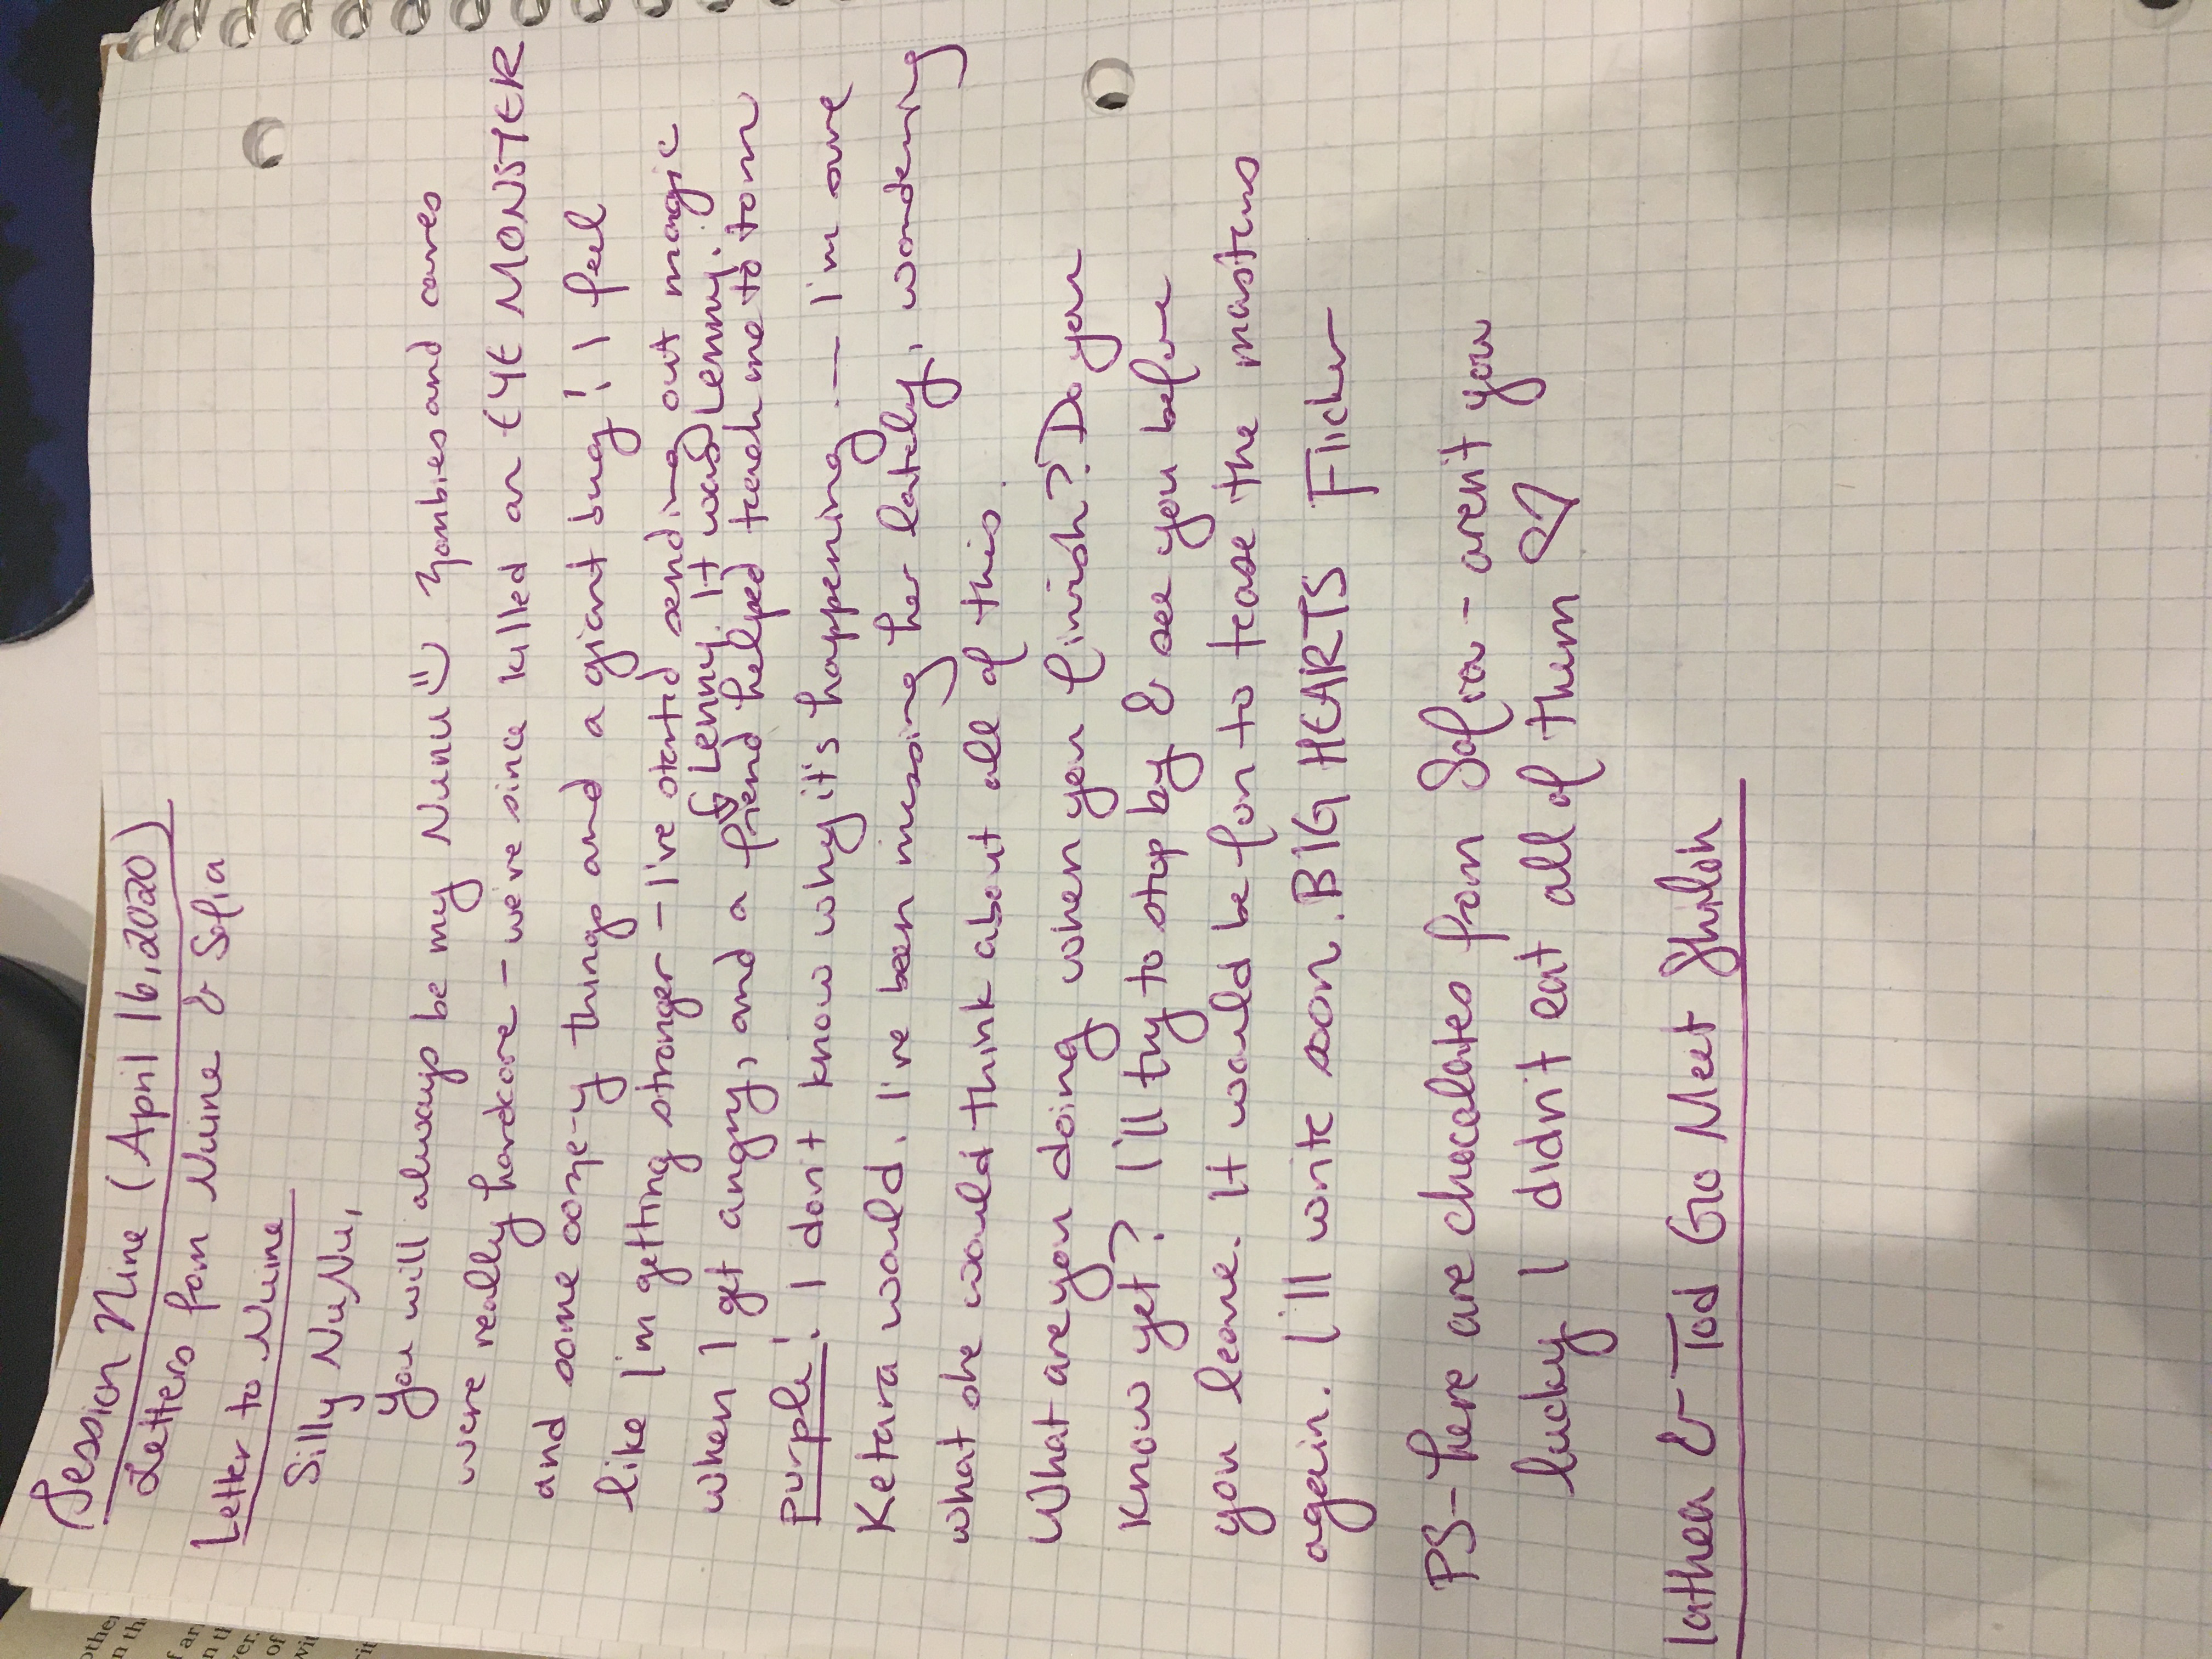 Session Nine (April 16, 2020)
Letters from Nuine & Sofia
Letter to Nuine
Silly NuNu,
You will always be my Nunu Zombies and caves
were really hardcore - we've since killed an EYE MONSTER
and some ooze-y things and a giant bug! I feel
like I'm getting stronger - I've started sending out magic
Lenny. It was Lenny.
when I get angry, and a friend helped teach me to turn
purple! I don't know why it's happening -- I'm sure
Ketara would. I've been missing her lately, wondering
what she would think about all of this.
What are you doing when you finish? Do you
know yet? I'll try to stop by & see you before
you leave. It would be fun to tease the masters
again. I'll write soon. BIG HEARTS Flicker
PS- here are chocolates from Sofia - aren't you
lucky I didn't eat all of them ♡
Iathea & Tod Go Meet Shiloh